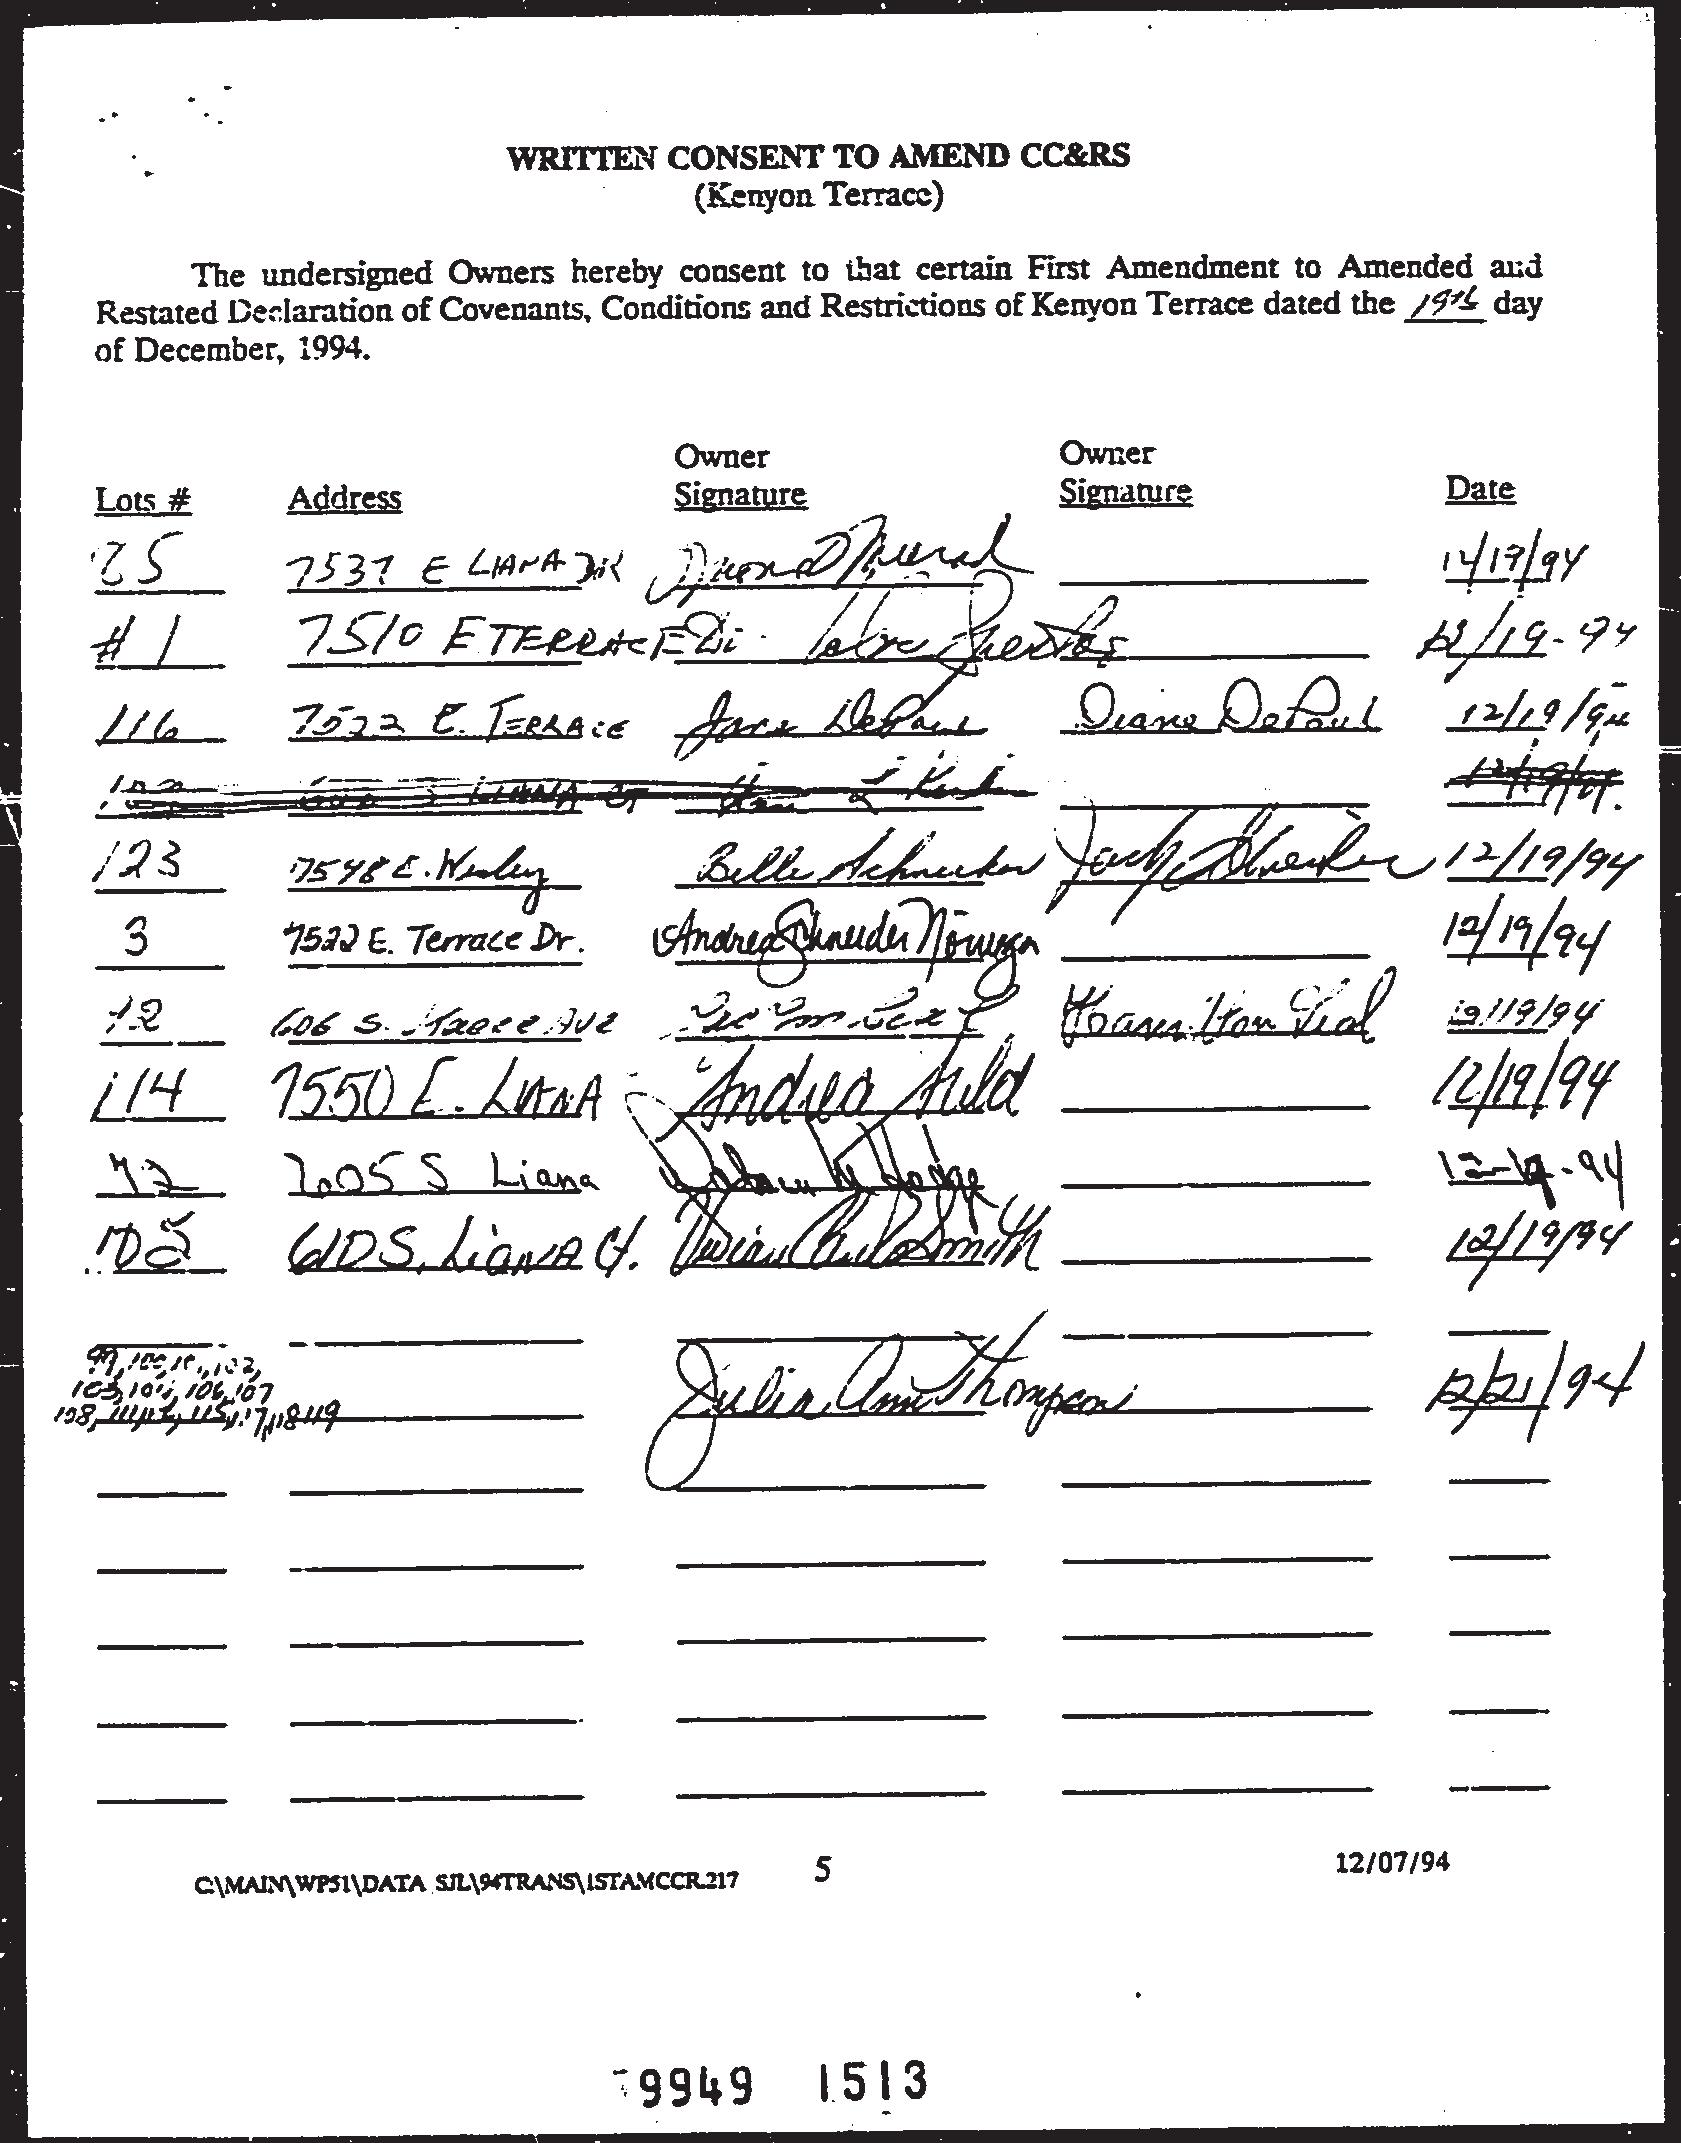 WRITTEN CONSENT TO AMEND CC&RS
(Kenyon Terrace)
The undersigned Owners hereby consent to that certain First Amendment to Amended and
Restated Declaration of Covenants, Conditions and Restrictions of Kenyon Terrace dated the 19th day
of December, 1994.
Owner Owner
Lots # Address Signature Signature Date
7537 E LIANA DR 12/19/94
# 1 7510 E TERRACE Dr. 12/19-94
116 7522 E. TERRACE DePaul Diane DePaul 12/19/94
LIANA CT
123 7548 E. Wesley Belle Schneider Jack Schneider 12/19/94
3 7522 E. Terrace Dr. Andrea Schneider 12/19/94
12 606 S. Ave 12/19/94
114 7550 E. LIANA Andrea Auld 12/19/94
605 S Liana 12-19-94
105 610 S. LIANA Ct. Vivian Smith 12/19/94
99, 100, 101, 102,
103, 104, 106, 107
108, 111, 112, 115, 117, 118 119 Julia Ann Thompson 12/21/94
C:\MAIN\WP51\DATA SJL\94TRANS\1STAMCCR.217 5 12/07/94
9949 1513